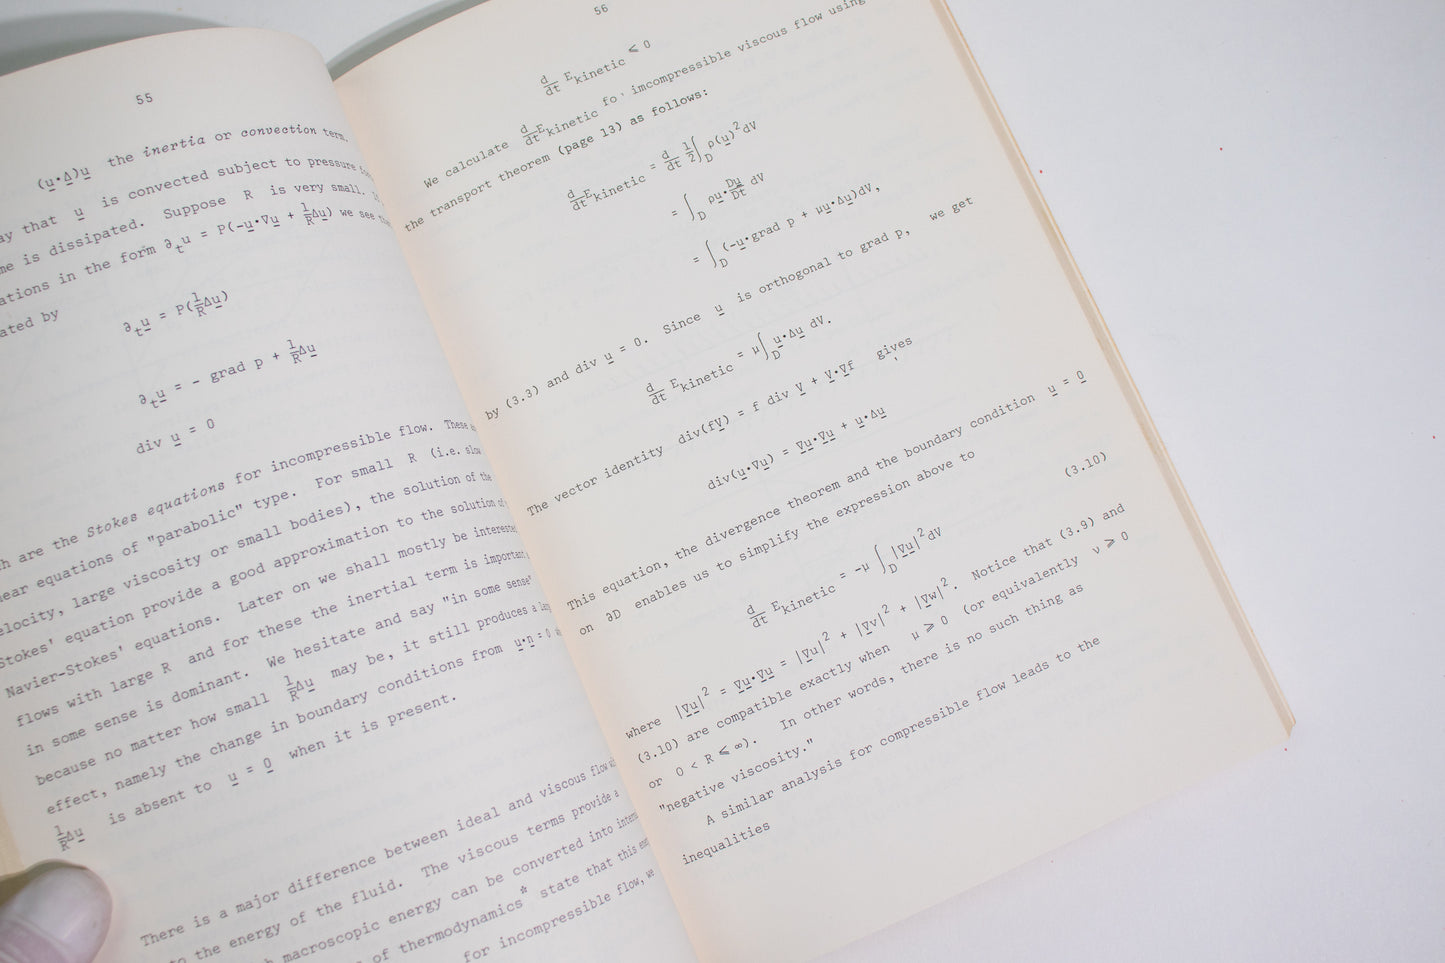 55
(u·Δ)u the inertia or convection term.
that u is convected subject to pressure
is dissipated. Suppose R is very small.
in the form ∂ₜu = P(-u·∇u + 1/R Δu) we see
by
∂ₜu = P(1/R Δu)
∂ₜu = - grad p + 1/R Δu
div u = 0
are the Stokes equations for incompressible flow. These
equations of "parabolic" type. For small R (i.e. slow
large viscosity or small bodies), the solution of the
Stokes' equation provide a good approximation to the solution of
Navier-Stokes' equations. Later on we shall mostly be interested
flows with large R and for these the inertial term is important
in some sense is dominant. We hesitate and say "in some sense"
because no matter how small 1/R Δu may be, it still produces a
effect, namely the change in boundary conditions from u·n = 0
1/R Δu is absent to u = 0 when it is present.
There is a major difference between ideal and viscous flow
to the energy of the fluid. The viscous terms provide a
macroscopic energy can be converted into
of thermodynamics* state that this
for incompressible flow, we
56
d/dt E kinetic ⩽ 0
We calculate d/dt E kinetic imcompressible viscous flow using
the transport theorem (page 13) as follows:
d/dt E kinetic = d/dt 1/2 ∫_D ρ(u)² dV
= ∫_D ρu·Du/Dt dV
= ∫_D (-u·grad p + μu·Δu)dV,
by (3.3) and div u = 0. Since u is orthogonal to grad p, we get
d/dt E kinetic = μ∫_D u·Δu dV.
The vector identity div(fV) = f div V + V·∇f gives
div(u·∇u) = ∇u·∇u + u·Δu
This equation, the divergence theorem and the boundary condition u = 0
on ∂D enables us to simplify the expression above to
(3.10)
d/dt E kinetic = -μ ∫_D |∇u|² dV
where |∇u|² = ∇u·∇u = |∇u|² + |∇v|² + |∇w|². Notice that (3.9) and
(3.10) are compatible exactly when μ ⩾ 0 (or equivalently ν ⩾ 0
or 0 < R ⩽ ∞). In other words, there is no such thing as
"negative viscosity."
A similar analysis for compressible flow leads to the
inequalities